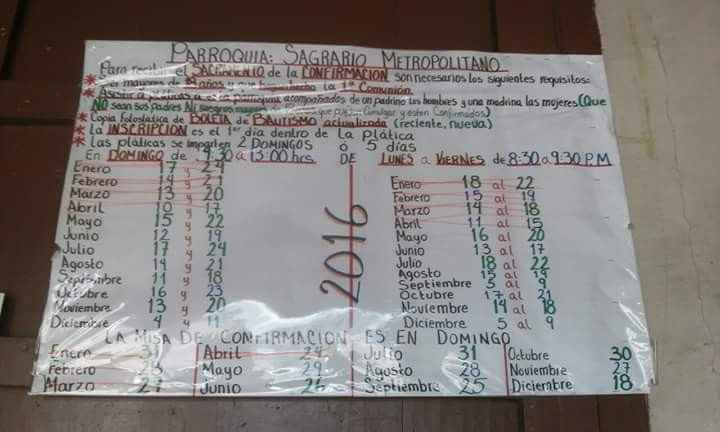 PARROQUIA: SAGRARIO METROPOLITANO
Para recibir el SACRAMENTO de la CONFIRMACION son necesarios los siguientes requisitos:
* Ser mayores de años y que hecho la 1ª Comunión.
* Asistir a pláticas a esta parroquia acompañados de un padrino los hombres y una madrina las mujeres (Que
NO sean sus padres Ni suegros que puedan Comulgar y estén Confirmados)
* Copia fotostatica de BOLETA de BAUTISMO actualizada (reciente, nueva)
* La INSCRIPCION es el 1er día dentro de la plática
* Las pláticas se imparten 2 DOMINGOS ó 5 días
En DOMINGO de 9:30 a 13:00 hrs. DE LUNES a VIERNES de 8:30 a 9:30 P.M
2016
Enero 17 y 24
Febrero 14 y 21
Marzo 13 y 20
Abril 10 y 17
Mayo 15 y 22
Junio 12 y 19
Julio 17 y 24
Agosto 14 y 21
Septiembre 11 y 18
Octubre 16 y 23
Noviembre 13 y 20
Diciembre 4 y 11
Enero 18 al 22
Febrero 15 al 19
Marzo 14 al 18
Abril 11 al 15
Mayo 16 al 20
Junio 13 al 17
Julio 18 al 22
Agosto 15 al 19
Septiembre 5 al 9
Octubre 17 al 21
Noviembre 14 al 18
Diciembre 5 al 9
LA MISA DE CONFIRMACION ES EN DOMINGO
Enero 31 Abril 24 Julio 31 Octubre 30
Febrero 28 Mayo 29 Agosto 28 Noviembre 27
Marzo 27 Junio 26 Septiembre 25 Diciembre 18